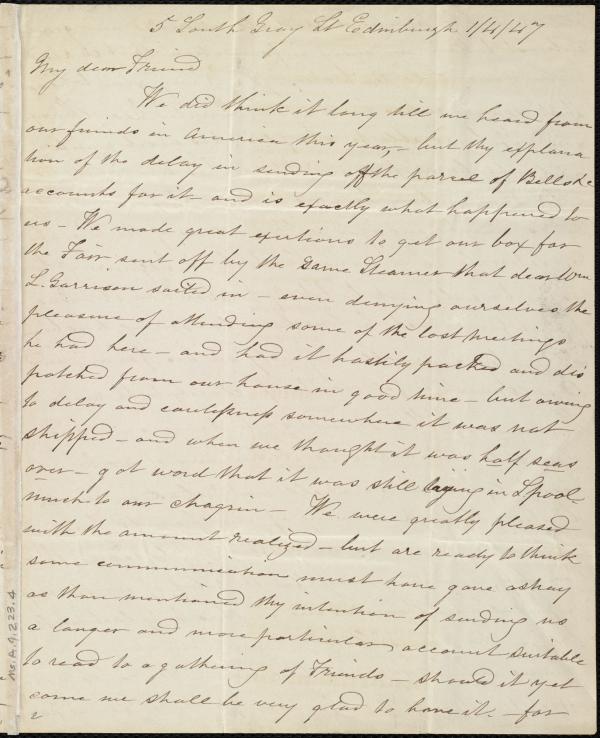 5 South Gray St Edinburgh 1/4/47
My dear Friend
We did think it long till we heard from
our friends in America this year, - but thy explana
tion of the delay in sending off the parcel of Bells &c
accounts for it - and is exactly what happened to
us - We made great exertions to get our box for
the Fair sent off by the same Steamer that dear Wm
L. Garrison sailed in - even denying ourselves the
pleasure of attending some of the last meetings
he had here - and had it hastily packed and dis
patched from our house in good time - but owing
to delay and carelessness somewhere it was not
shipped - and when we thought it was half seas
over - got word that it was still lying in Lpool -
much to our chagrin - We were greatly pleased
with the amount realized - but are ready to think
some communication must have gone astray
as thou mentioned thy intention of sending us
a longer and more particular account suitable
to read to a gathering of Friends - should it yet
come we shall be very glad to have it. - for
2
Ms.A.9.2.23.4